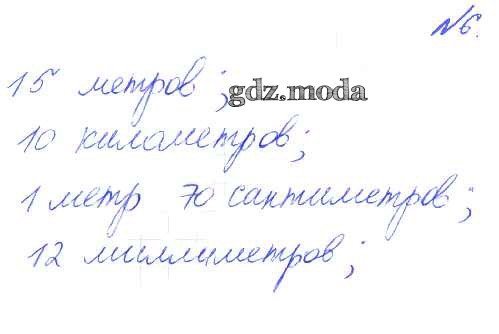 №6.
15 метров;
gdz.moda
10 километров;
1 метр 70 сантиметров;
12 миллиметров;